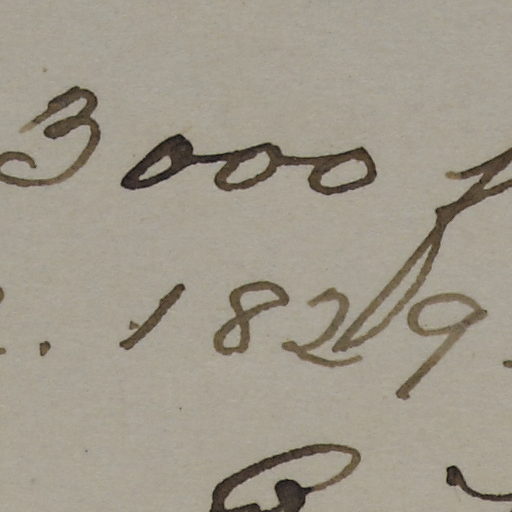 3000 f
. 1829.